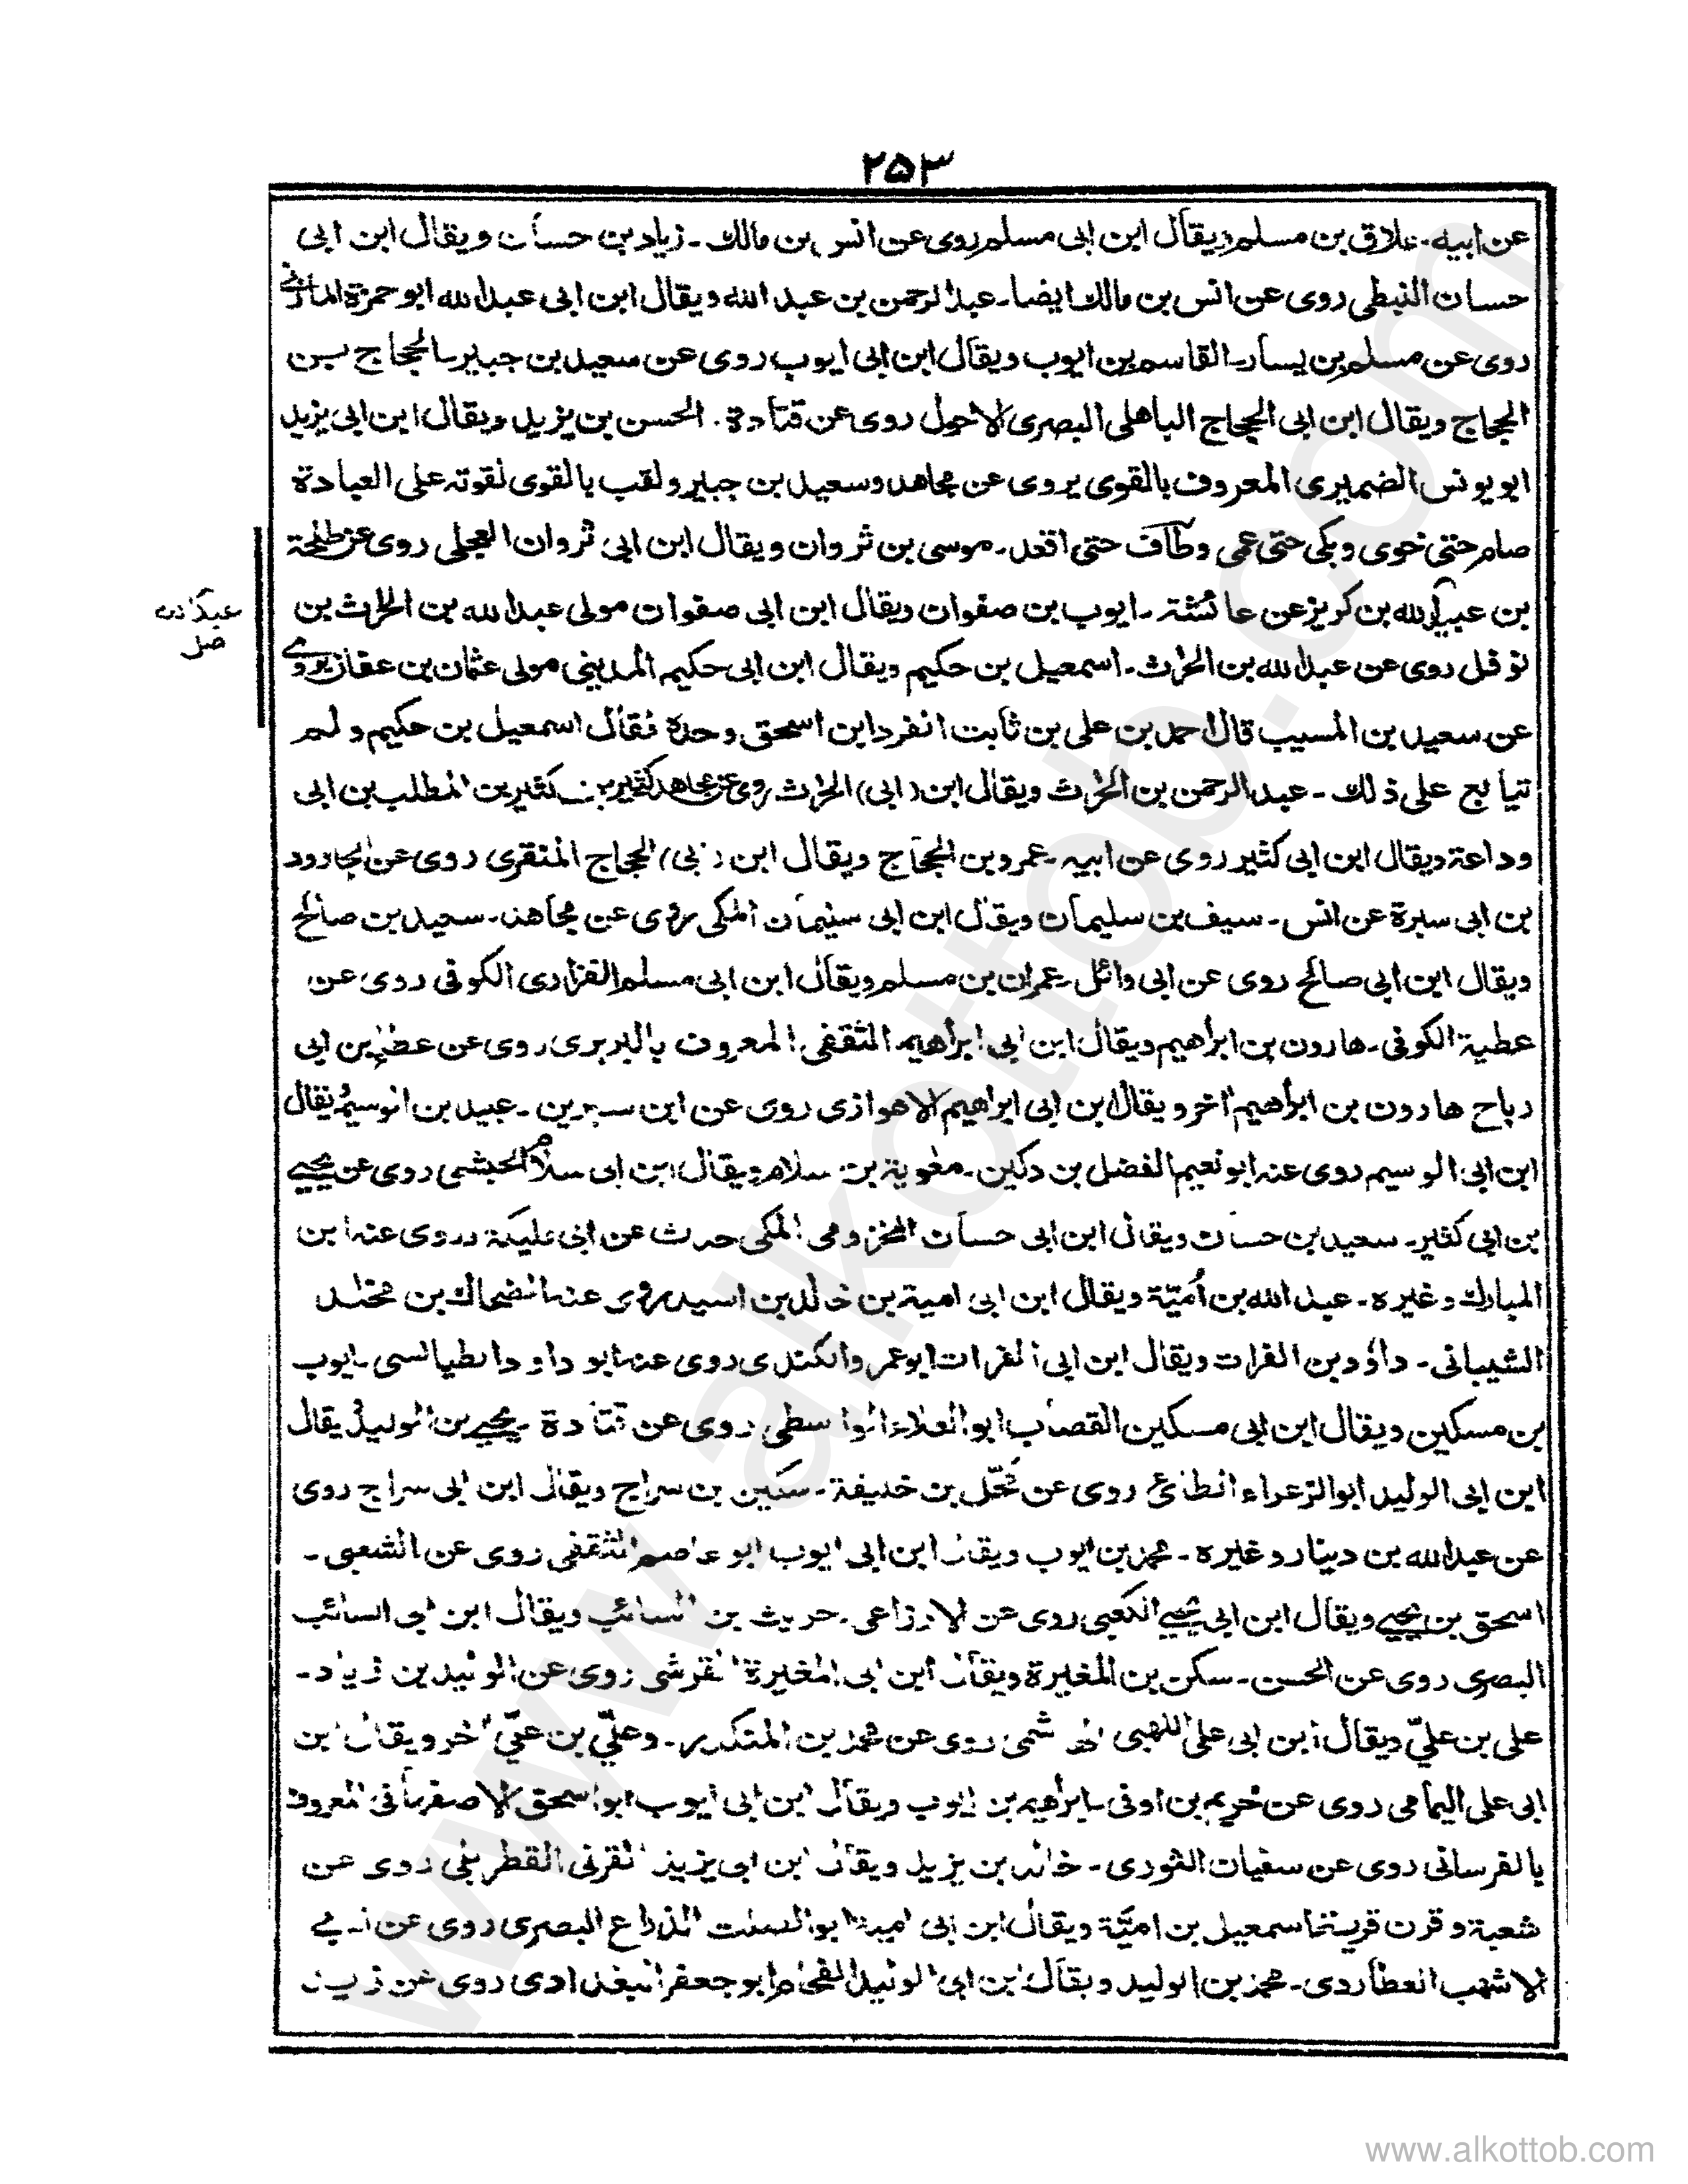 ٢٥٣
عن ابيه۔ علاق بن مسلم ويقال ابن ابى مسلم روى عن انس بن مالك۔ زياد بن حسان ويقال ابن ابى
حسان النبطى روى عن انس بن مالك ايضا۔ عبد الرحمن بن عبد الله ويقال ابن ابى عبد الله ابو حمزة المازنى
روى عن مسلم بن يسار۔ القاسم بن ايوب ويقال ابن ابى ايوب روى عن سعيد بن جبير۔ الحجاج بن
الحجاج ويقال ابن ابى الحجاج الباهلى البصرى الاحول روى عن قتادة۔ الحسن بن يزيد ويقال ابن ابى يزيد
ابو يونس الضميرى المعروف بالقوى يروى عن مجاهد وسعيد بن جبير ولقب بالقوى لقوته على العبادة
صام حتى خوى وبكى حتى عمى وطاف حتى اقعد۔ موسى بن ثروان ويقال ابن ابى ثروان العجلى روى عن طلحة
بن عبيد الله بن كريز عن عائشة۔ ايوب بن صفوان ويقال ابن ابى صفوان مولى عبد الله بن الحرث بن
نوفل روى عن عبد الله بن الحرث۔ اسمعيل بن حكيم ويقال ابن ابى حكيم المدينى مولى عثمان بن عفان يروى
عن سعيد بن المسيب قال احمد بن على بن ثابت انفرد ابن اسحق وحده فقال اسمعيل بن حكيم ولم
يتابع على ذلك۔ عبد الرحمن بن الحرث ويقال ابن (ابى) الحرث روى عن مجاهد كثير بن كثير بن المطلب بن ابى
وداعة ويقال ابن ابى كثير روى عن ابيه۔ عمرو بن الحجاج ويقال ابن (ابى) الحجاج المنقرى روى عن الجارود
بن ابى سبرة عن انس۔ سيف بن سليمان ويقال ابن ابى سليمان المكى روى عن مجاهد۔ سعيد بن صالح
ويقال ابن ابى صالح روى عن ابى وائل۔ عمران بن مسلم ويقال ابن ابى مسلم الفزارى الكوفى روى عن
عطية الكوفى۔ هارون بن ابراهيم ويقال ابن ابى ابراهيم الثقفى المعروف بالبربرى روى عن عطاء بن ابى
رباح هارون بن ابراهيم اخر ويقال ابن ابى ابراهيم الاهوازى روى عن ابن سيرين۔ عبيد بن الوسيم ويقال
ابن ابى الوسيم روى عنه ابو نعيم الفضل بن دكين۔ معوية بن سلام ويقال ابن ابى سلام الحبشى روى عن يحيى
بن ابى كثير۔ سعيد بن حسان ويقال ابن ابى حسان المخزومى المكى حدث عن ابى مليكة وروى عنه ابن
المبارك وغيره۔ عبد الله بن أميّة ويقال ابن ابى امية بن خالد بن اسيد روى عنه الضحاك بن مخلد
الشيبانى۔ داؤد بن الفرات ويقال ابن ابى الفرات ابو عمرو الكندى روى عنه ابو داود الطيالسى۔ ايوب
بن مسكين ويقال ابن ابى مسكين القصاب ابو العلاء الواسطى روى عن قتادة۔ يحيى بن الوليد ويقال
ابن ابى الوليد ابو الزعراء الطائى روى عن مُحلّ بن خليفة۔ سكين بن سراج ويقال ابن ابى سراج روى
عن عبد الله بن دينار وغيره۔ محمد بن ايوب ويقال ابن ابى ايوب ابو عاصم الثقفى روى عن الشعبى۔
اسحق بن يحيى ويقال ابن ابى يحيى الكعبى روى عن الاوزاعى۔ حريث بن السائب ويقال ابن ابى السائب
البصرى روى عن الحسن۔ سكن بن المغيرة ويقال ابن ابى المغيرة القرشى روى عن الوليد بن زياد۔
على بن علىّ ويقال ابن ابى على اللهبى الهاشمى روى عن محمد بن المنكدر۔ وعلىّ بن علىّ اخر ويقال ابن
ابى على اليمامى روى عن خريم بن اوفى۔ ابراهيم بن ايوب ويقال ابن ابى ايوب ابو اسحق الاصفهانى المعروف
بالفرسانى روى عن سفيان الثورى۔ خالد بن يزيد ويقال ابن ابى يزيد القرنى القطربلى روى عن
شعبة وقرن قريتنا اسمعيل بن اميّة ويقال ابن ابى امية ابو الصلت الذراع البصرى روى عن ابى
الاشهب العطاردى۔ محمد بن الوليد ويقال ابن ابى الوليد الفحام ابو جعفر البغدادى روى عن زيد
صل
www.alkottob.com
www.alkottob.com